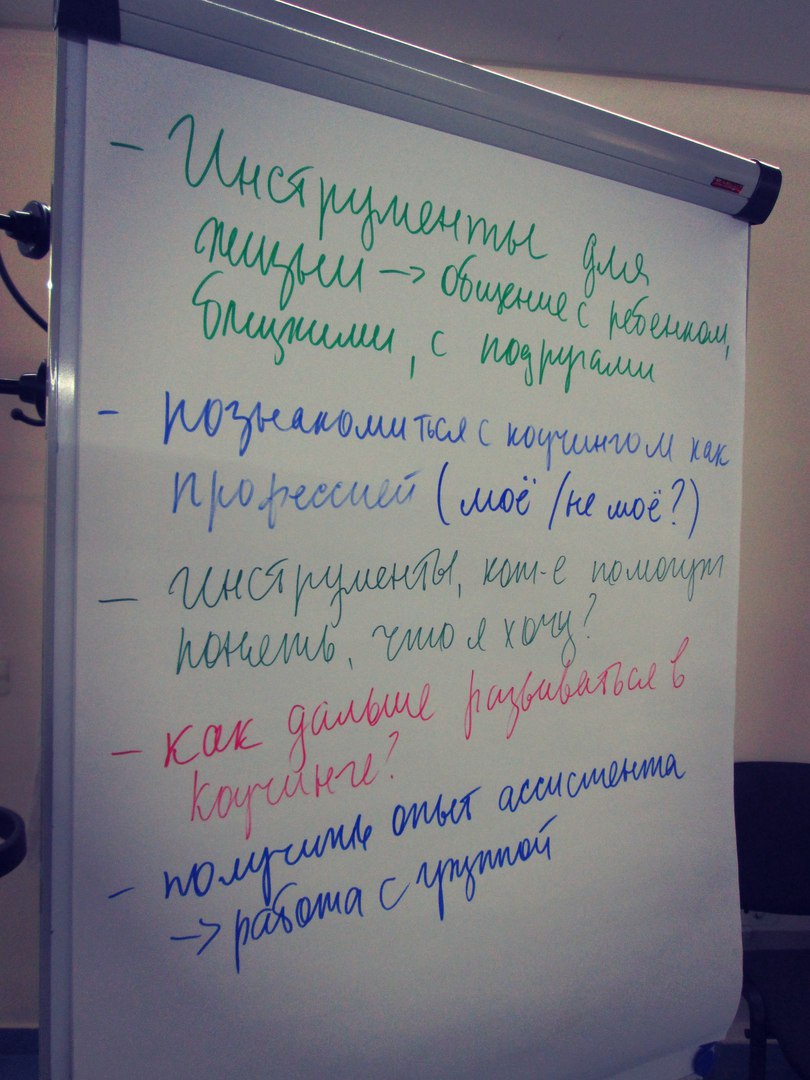 - Инструменты для
жизни → общение с ребенком,
близкими, с подругами
- познакомиться с коучингом как
профессией (моё / не моё?)
- инструменты, кот-е помогут
понять, что я хочу?
- как дальше развиваться в
коучинге?
- получить опыт ассистента
→ работа с группой